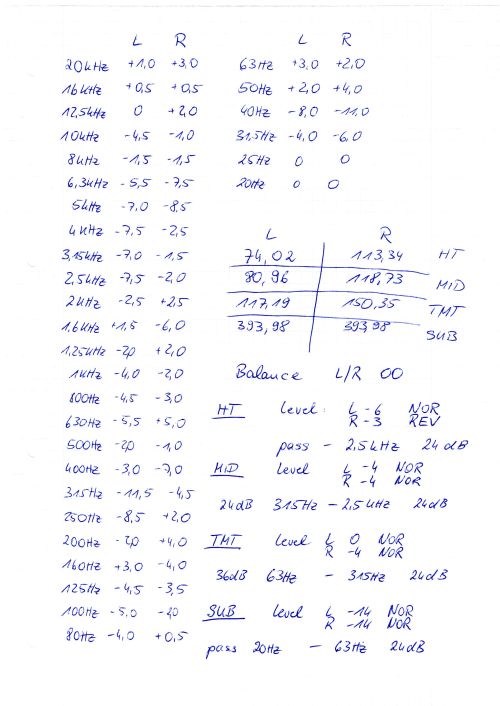 L R
20kHz +1,0 +3,0
16kHz +0,5 +0,5
12,5kHz 0 +2,0
10kHz -4,5 -1,0
8kHz -1,5 -1,5
6,3kHz -5,5 -7,5
5kHz -7,0 -8,5
4kHz -7,5 -2,5
3,15kHz -7,0 -1,5
2,5kHz -7,5 -2,0
2kHz -2,5 +2,5
1,6kHz +1,5 -6,0
1,25kHz -2,0 +2,0
1kHz -4,0 -2,0
800Hz -4,5 -3,0
630Hz -5,5 +5,0
500Hz -2,0 -1,0
400Hz -3,0 -7,0
315Hz -11,5 -4,5
250Hz -8,5 +2,0
200Hz -2,0 +4,0
160Hz +3,0 -4,0
125Hz -4,5 -3,5
100Hz -5,0 -2,0
80Hz -4,0 +0,5
L R
63Hz +3,0 +2,0
50Hz +2,0 +4,0
40Hz -8,0 -11,0
31,5Hz -4,0 -6,0
25Hz 0 0
20Hz 0 0
L R
74,02 113,34 HT
80,96 118,73 MID
117,19 150,35 TMT
393,98 393,98 SUB
Balance L/R 00
HT Level: L -6 NOR
R -3 REV
pass - 2,5kHz 24dB
MID Level L -4 NOR
R -4 NOR
24dB 315Hz - 2,5kHz 24dB
TMT Level L 0 NOR
R -4 NOR
36dB 63Hz - 315Hz 24dB
SUB Level L -14 NOR
R -14 NOR
pass 20Hz - 63Hz 24dB